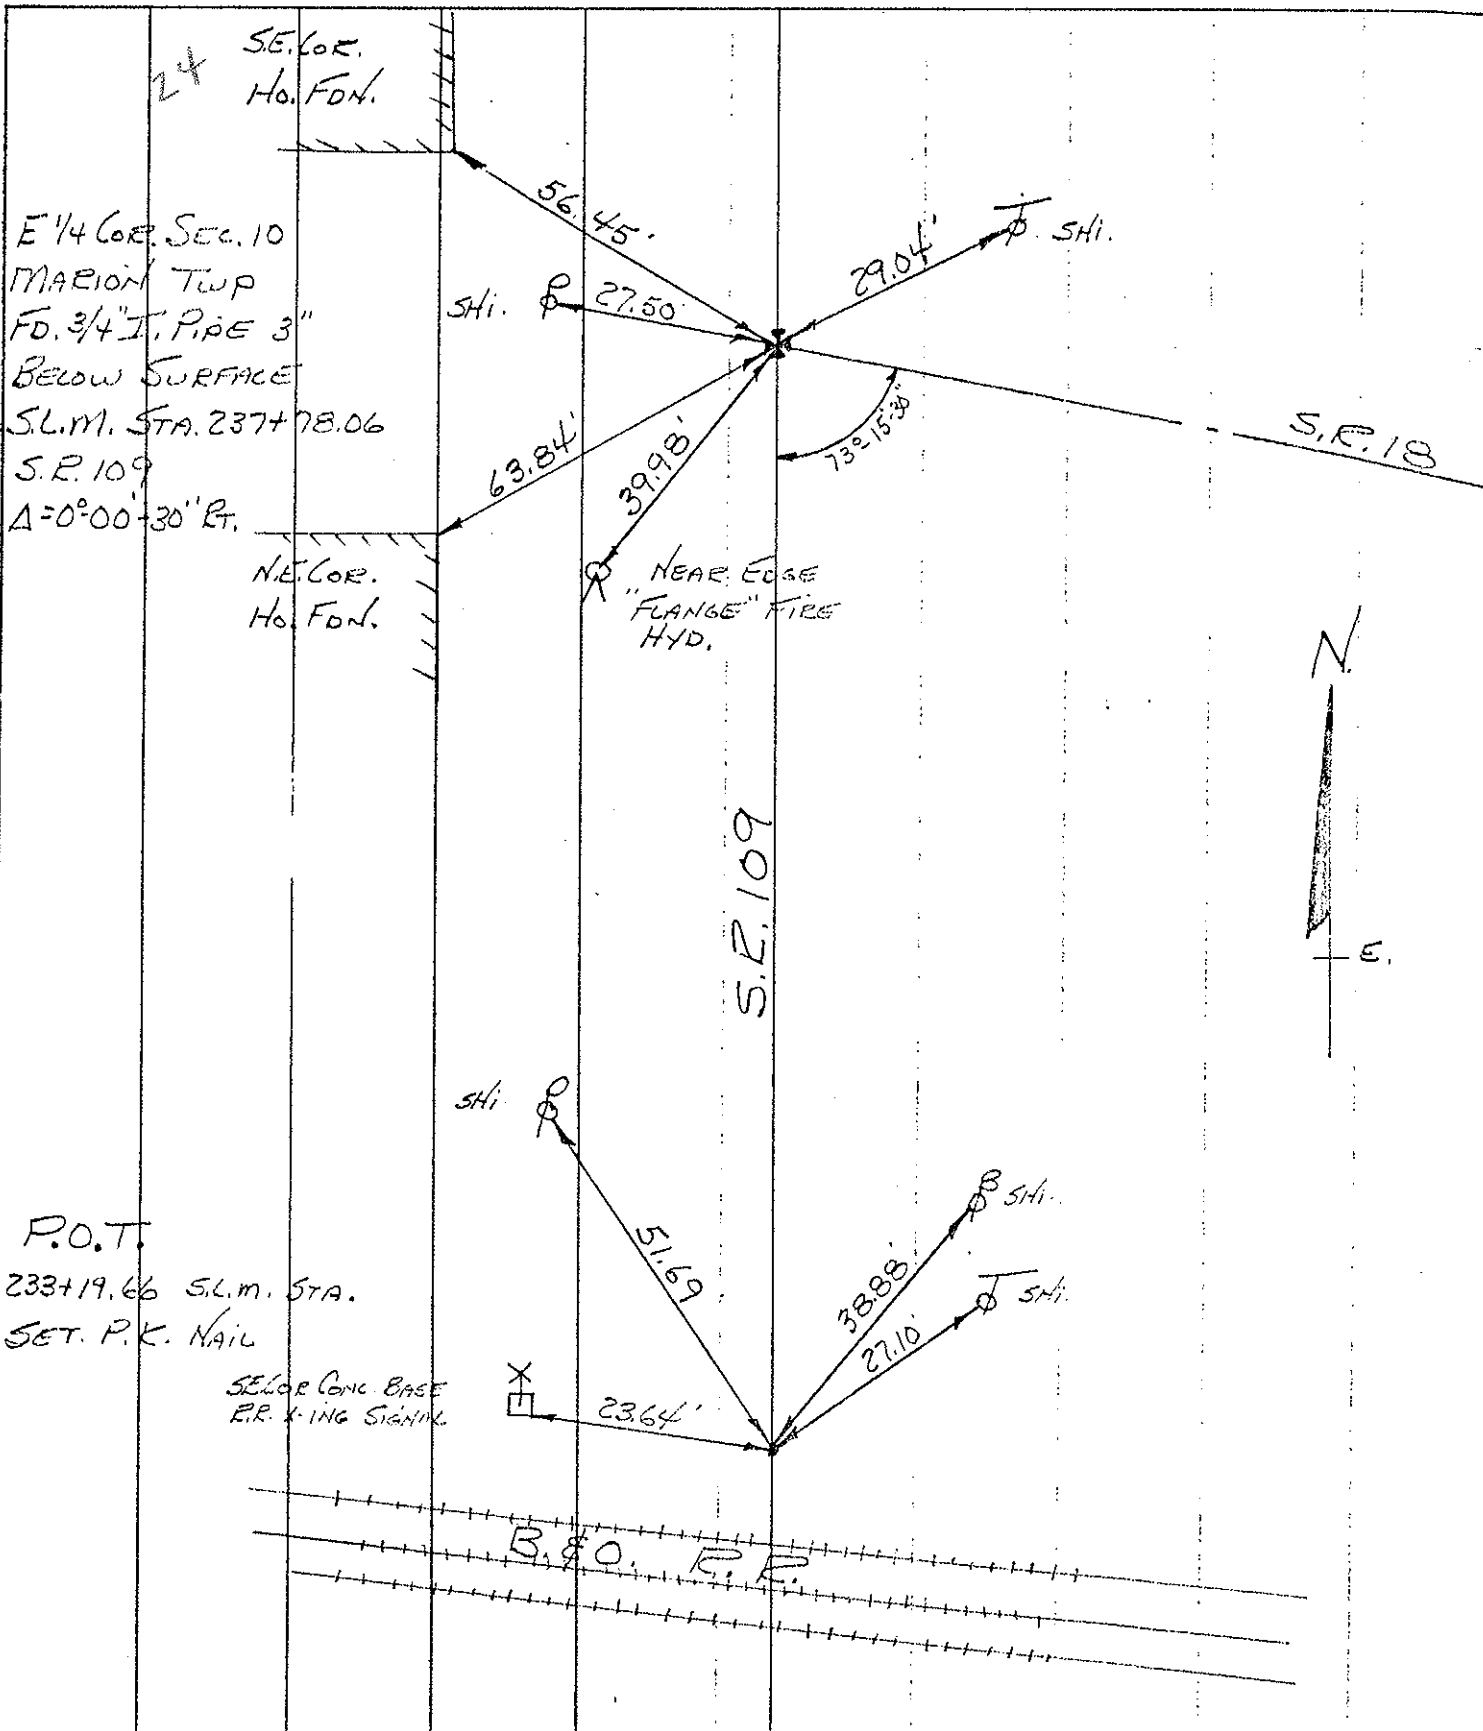 24
S.E. COR.
HO. FDN.
56.45'
E 1/4 COR. SEC. 10
MARION TWP
FD. 3/4" I. PIPE 3"
BELOW SURFACE
S.L.M. STA. 237+78.06
S.R. 109
Δ=0°-00'-30" RT.
SHI.
27.50'
29.04'
SHI.
63.84'
39.98'
73°-15'-30"
S.R. 18
N.E. COR.
HO. FDN.
NEAR EDGE
"FLANGE" FIRE
HYD.
N.
E.
S.R. 109
SHI
51.69
SHI.
38.88'
SHI.
27.10'
P.O.T.
233+19.66 S.L.M. STA.
SET. P.K. NAIL
S.E. COR CONC. BASE
R.R. X-ING SIGNAL
23.64'
B. & O. R. R.